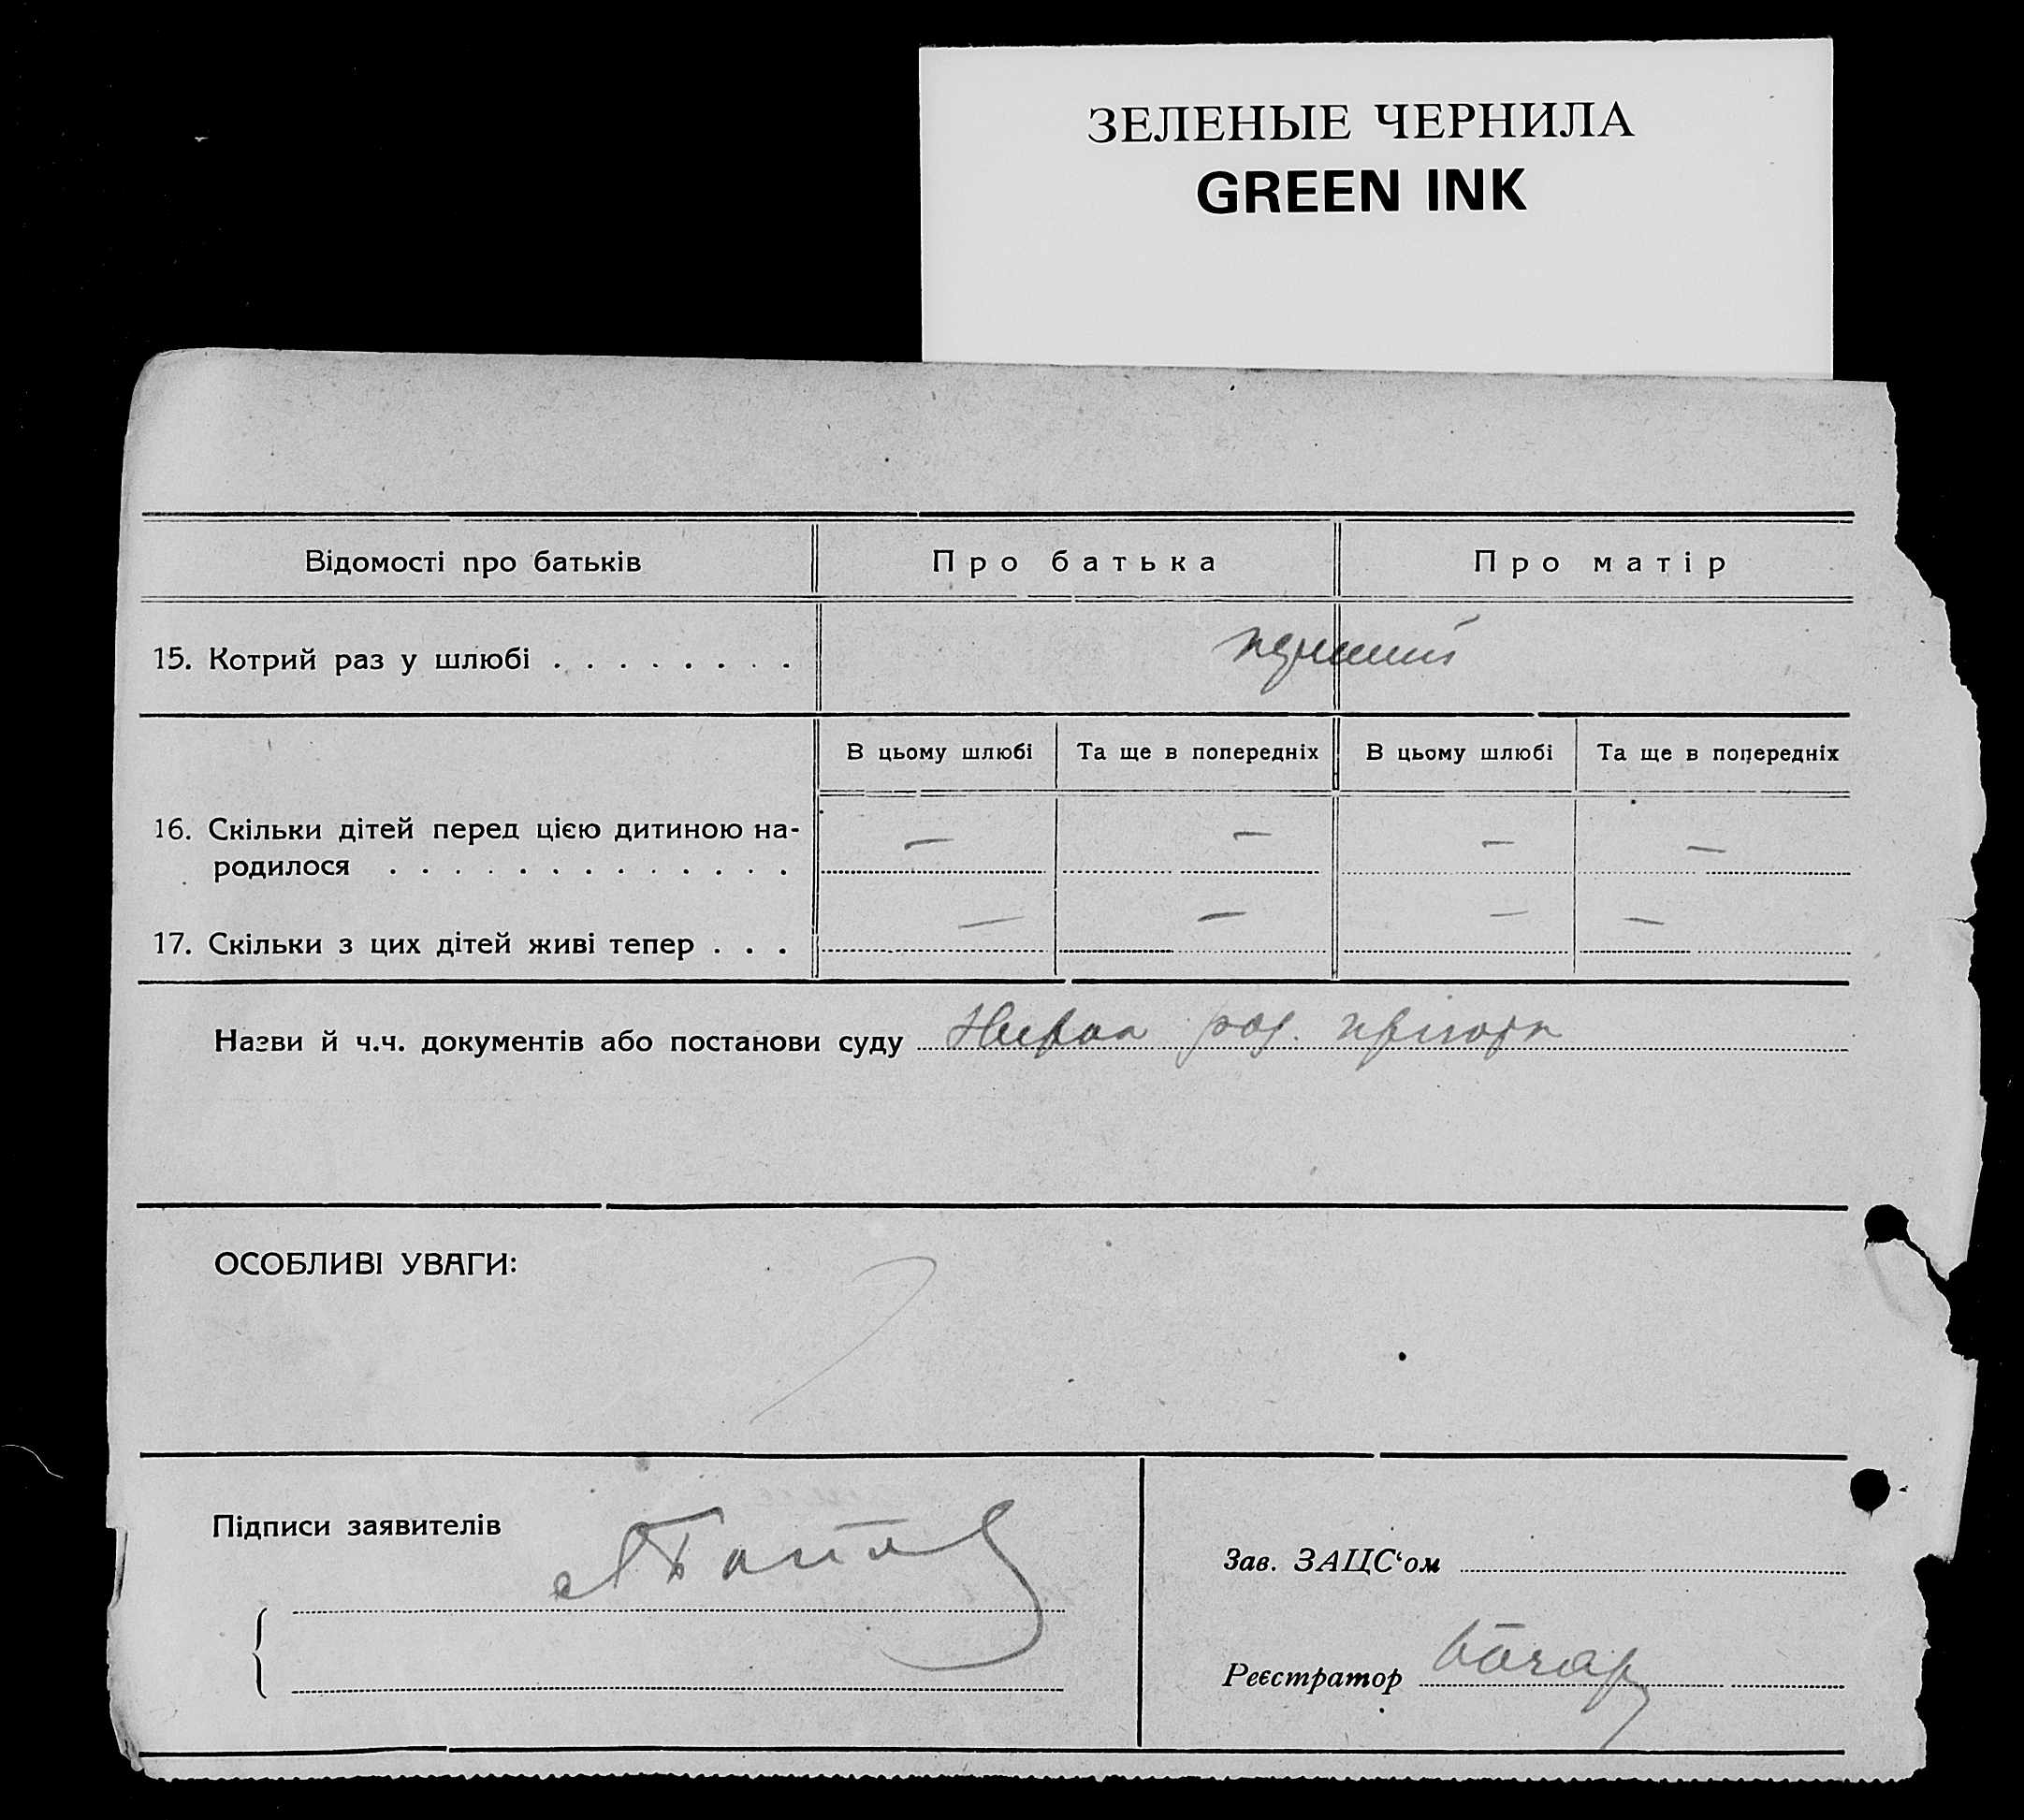 ЗЕЛЕНЫЕ ЧЕРНИЛА
GREEN INK
Відомості про батьків Про батька Про матір
15. Котрий раз у шлюбі . . . . . . . . перший
В цьому шлюбі Та ще в попередніх В цьому шлюбі Та ще в попередніх
16. Скільки дітей перед цією дитиною на-
родилося . . . . . . . . . . . . . — — — —
17. Скільки з цих дітей живі тепер . . . — — — —
Назви й ч.ч. документів або постанови суду
ОСОБЛИВІ УВАГИ:
Підписи заявителів
Зав. ЗАЦС‘ом
Реєстратор